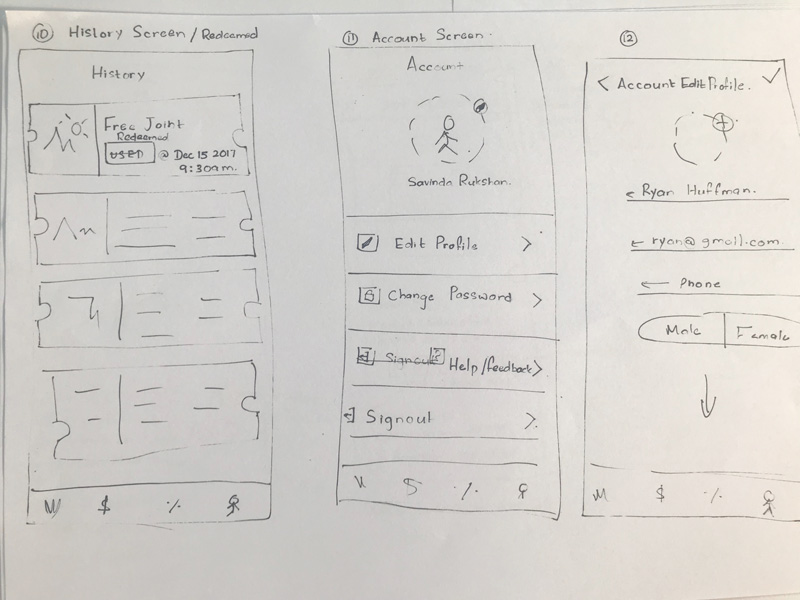 10 History Screen / Redeemed
History
Free Joint
Redeemed
USED @ Dec 15 2017
9:30am.
M $ ٪
11 Account Screen.
Account
Savinda Rukshan.
Edit Profile >
Change Password >
Signout Help/feedback >
Signout >
$ ٪
12
< Account Edit Profile.
Ryan Huffman.
ryan@gmail.com
Phone
Male Female
M $ ٪